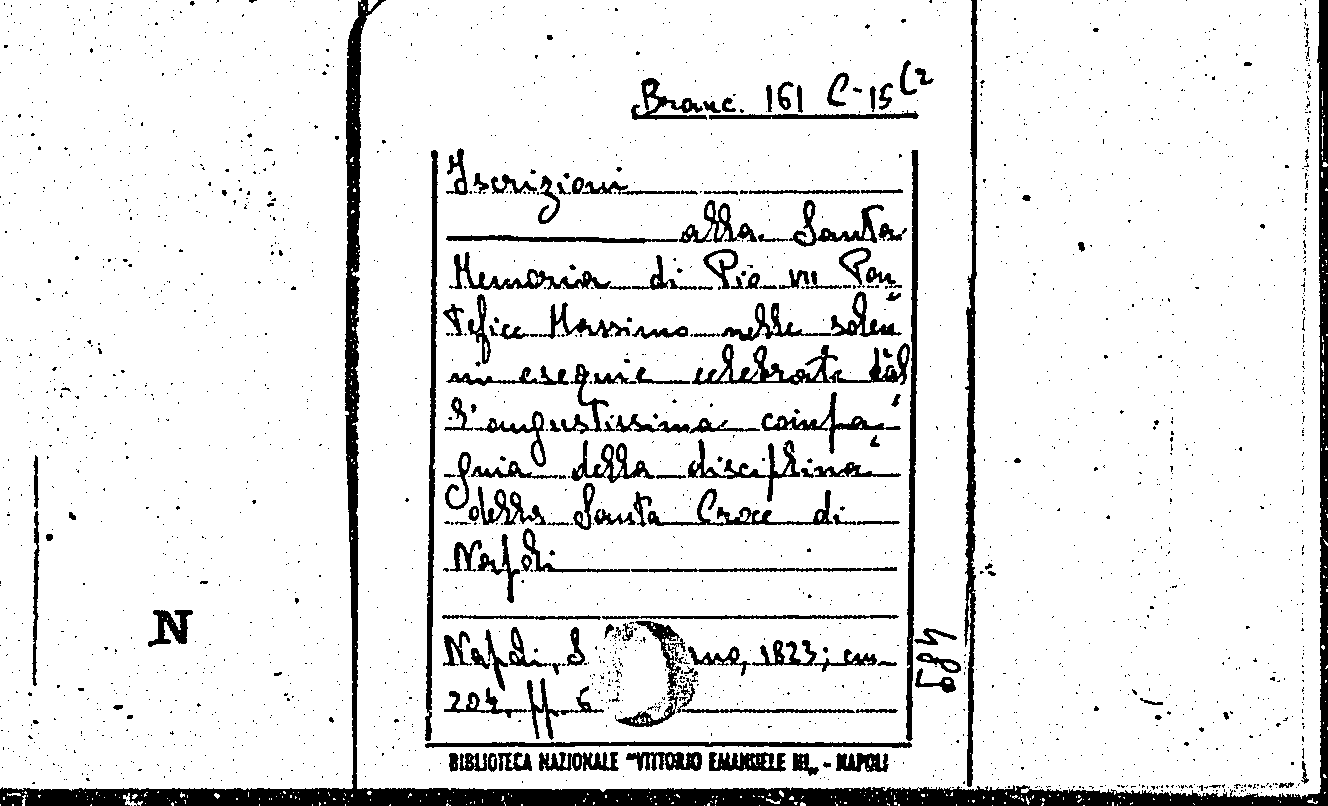 Branc. 161 C-15(2
Iscrizioni
alla Santa
Memoria di Pio VII Pon
tefice Massimo nelle solen
ni esequie celebrate dal
l'augustissima compa
gnia della disciplina
della Santa Croce di
Napoli
Napoli, S rno, 1823; cm.
20 ff. 6
489
N
BIBLIOTECA NAZIONALE "VITTORIO EMANUELE III„ - NAPOLI